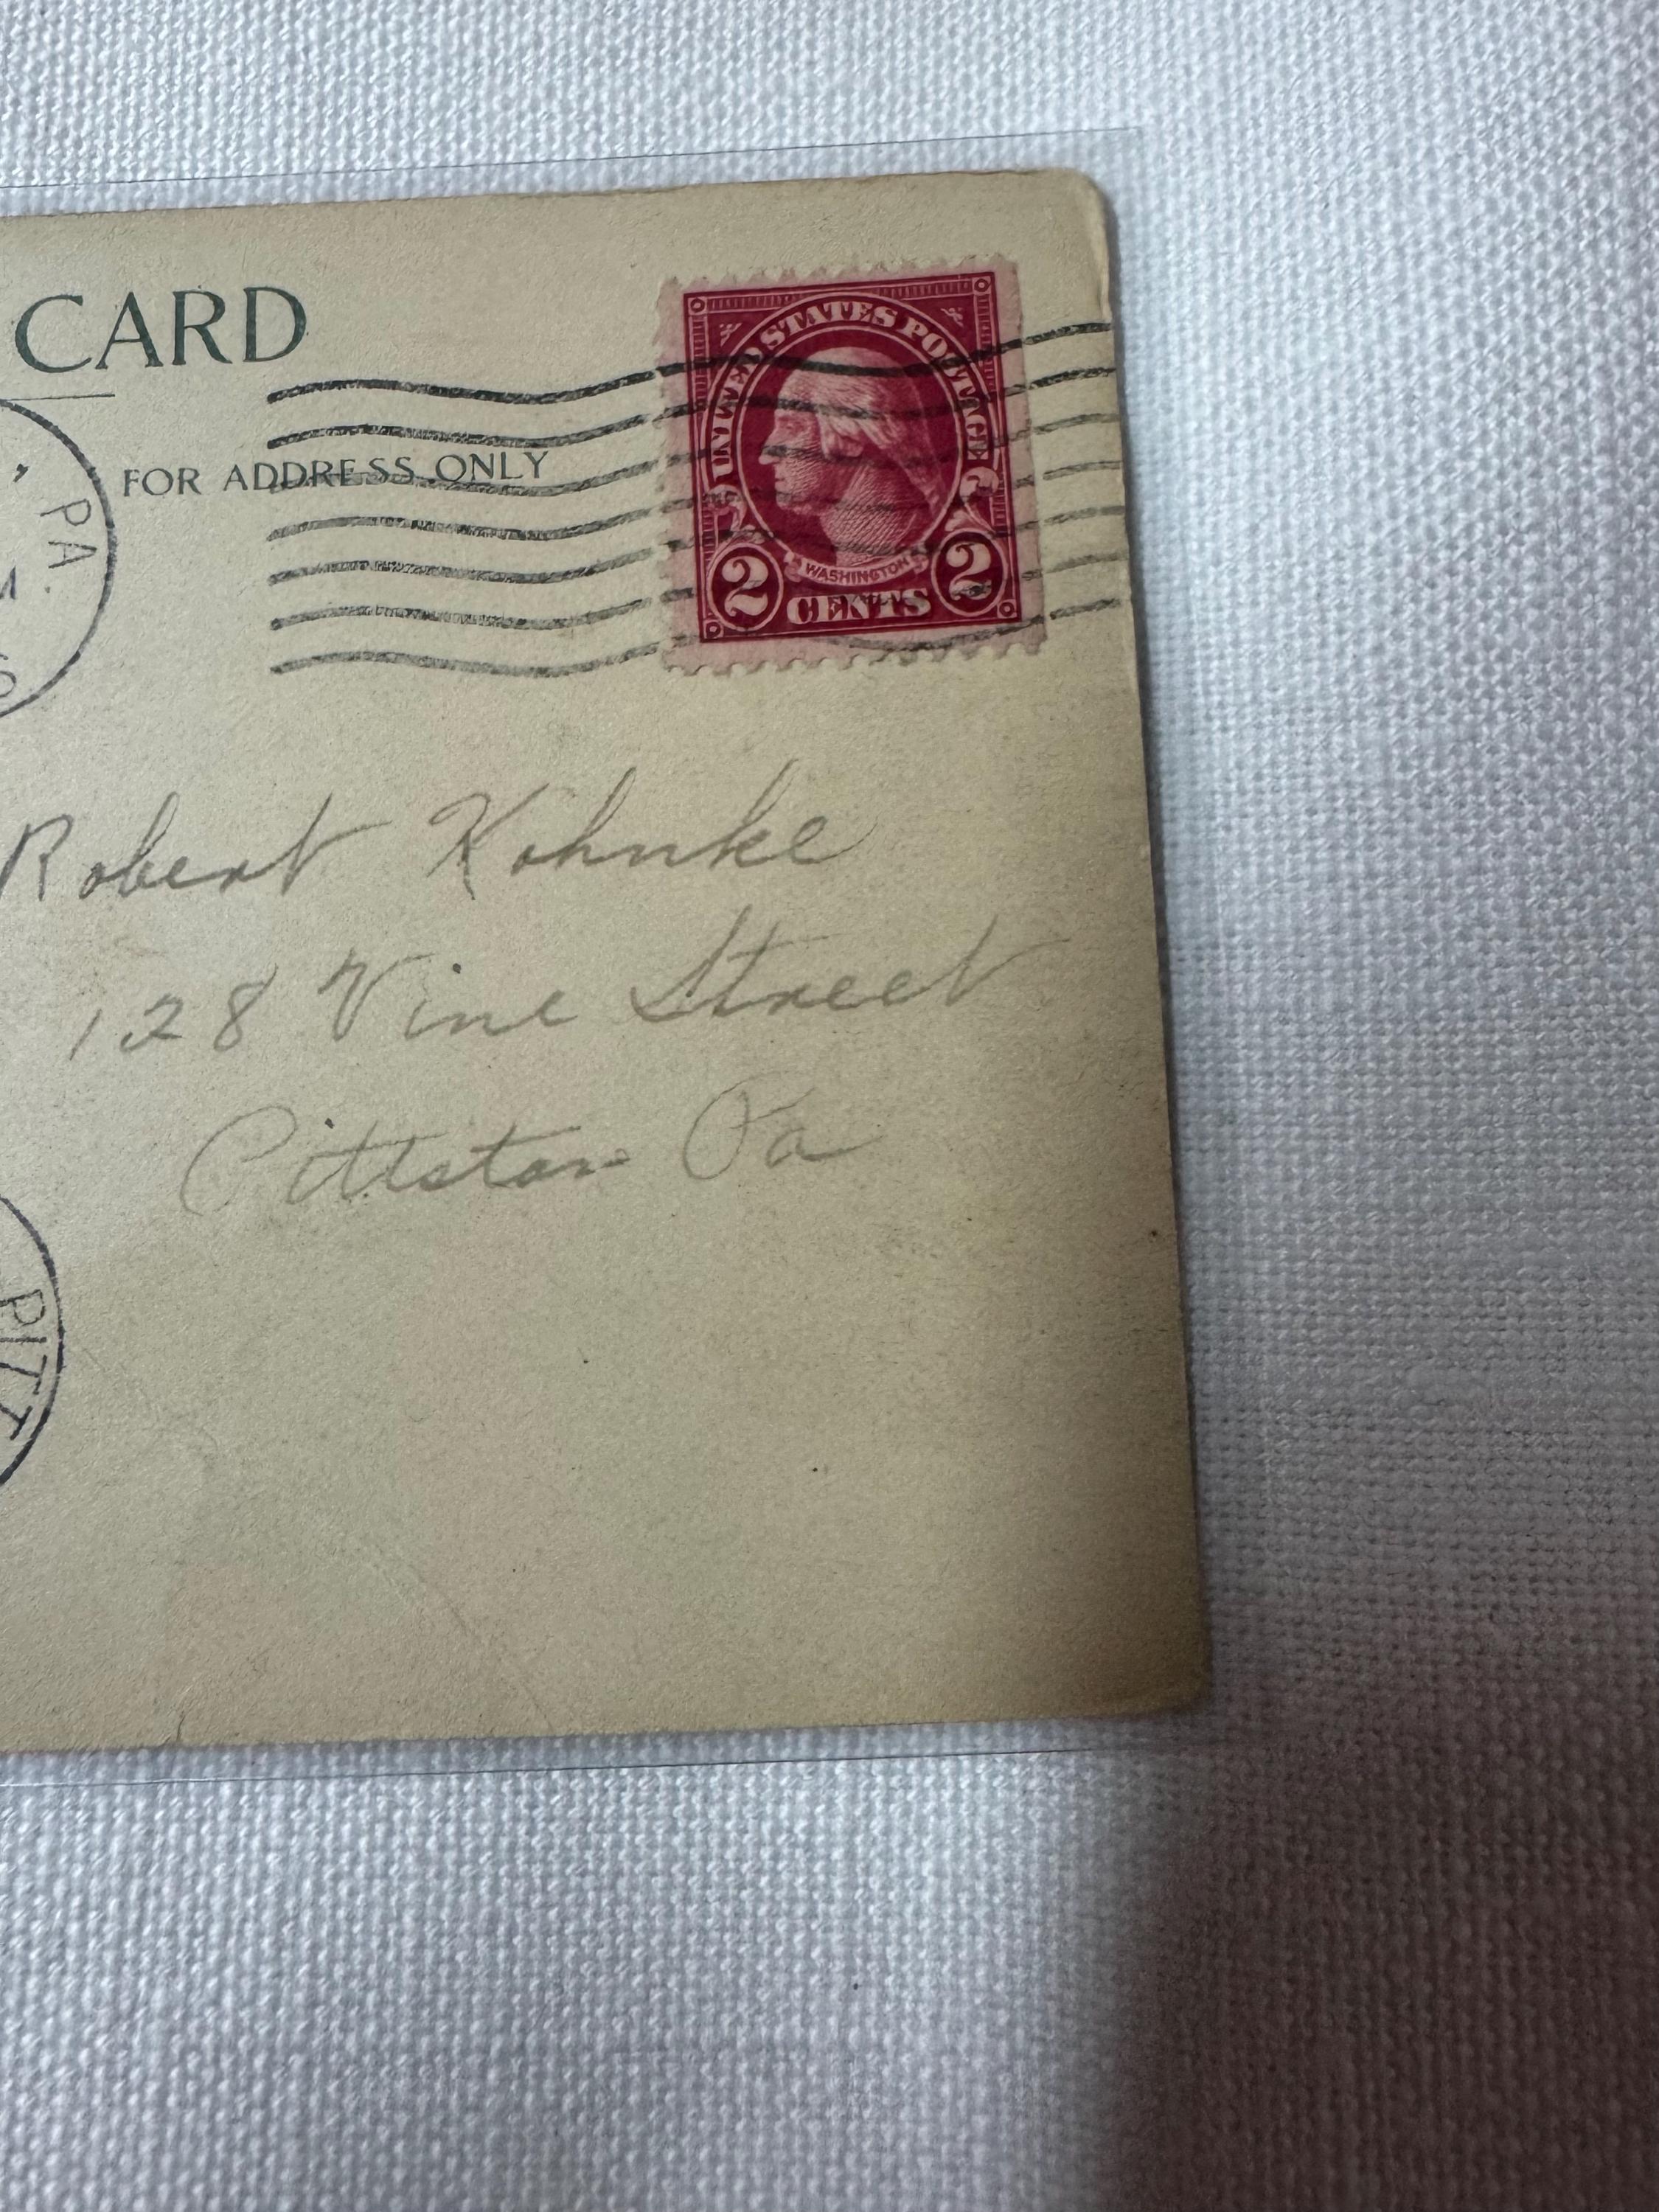 CARD
FOR ADDRESS ONLY
PA.
UNITED STATES POSTAGE
WASHINGTON
2 CENTS 2
Robert Kohnke
128 Vine Street
Pittston Pa
PITT